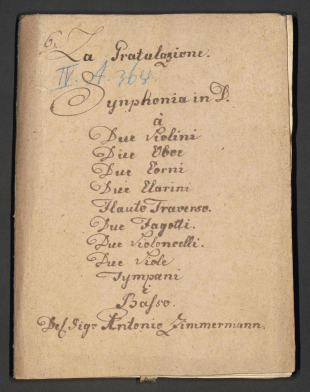 6.
La Gratulazione.
IV. A. 364
Synphonia in D.
à
Due Violini
Due Oboe
Due Corni
Due Clarini
Flauto Traverso.
Due Fagotti.
Due Violoncelli.
Due Viole
Tympani
è
Basso.
Del Sigr Antonio Zimmermann.